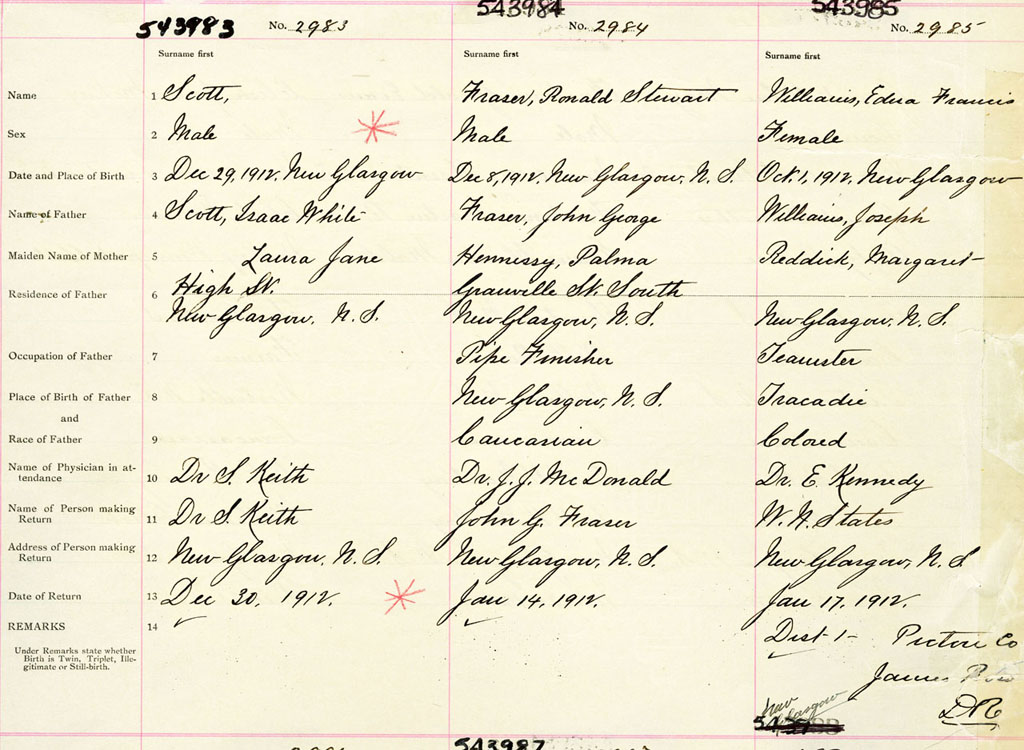 543983 No. 2983 543984 No. 2984 543985 No. 2985
Surname first Surname first Surname first
Name 1 Scott, Fraser, Ronald Stewart Williams, Edna Francis
Sex 2 Male Male Female
Date and Place of Birth 3 Dec 29, 1912. New Glasgow Dec 8, 1912. New Glasgow, N. S. Oct. 1, 1912. New Glasgow
Name of Father 4 Scott, Isaac White Fraser, John George Williams, Joseph
Maiden Name of Mother 5 Laura Jane Hennessy, Palma Reddick, Margaret
High St. Granville St. South
Residence of Father 6
New Glasgow, N. S. New Glasgow, N. S. New Glasgow, N. S.
Occupation of Father 7 Pipe Finisher Teamster
Place of Birth of Father 8 New Glasgow, N. S. Tracadie
and
Race of Father 9 Caucasian Colored
Name of Physician in at-
tendance 10 Dr S. Keith Dr. J. J. McDonald Dr. E. Kennedy
Name of Person making
Return 11 Dr S. Keith John G. Fraser W. N. States
Address of Person making
Return 12 New Glasgow, N. S. New Glasgow, N. S. New Glasgow, N. S
Date of Return 13 Dec 30, 1912. Jan 14, 1912. Jan 17, 1912.
REMARKS 14 Dist 1 - Pictou Co
Under Remarks state whether
Birth is Twin, Triplet, Ille-
gitimate or Still-birth.
James
DR
New
Glasgow
543987